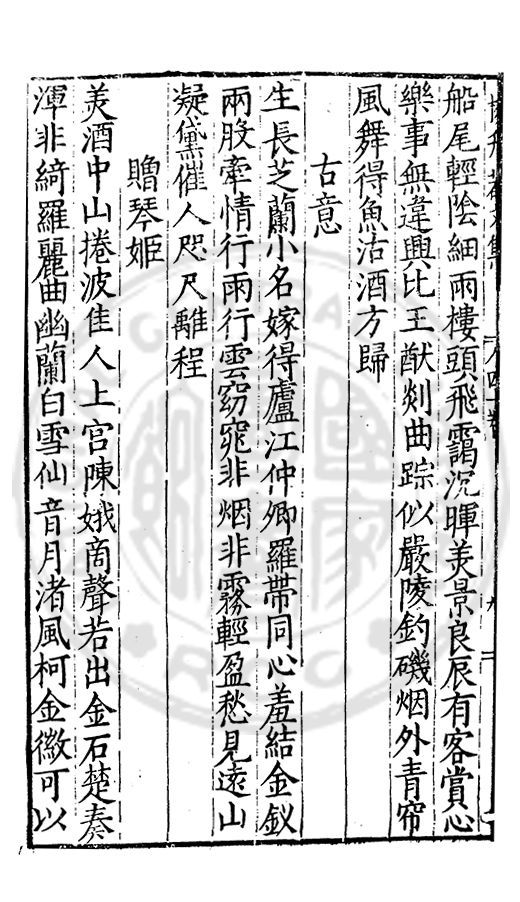 船尾輕陰細雨樓頭飛靄沉暉美景良辰有客賞心
樂事無違興比王猷剡曲踪似嚴陵釣磯烟外青帘
風舞得魚沽酒方歸
古意
生長芝蘭小名嫁得廬江仲卿羅帶同心羞結金釵
兩股牽情行雨行雲窈窕非烟非霧輕盈愁見遠山
凝黛催人咫尺離程
贈琴姬
美酒中山捲波佳人上宮陳娥商聲若出金石楚奏
渾非綺羅麗曲幽蘭白雪仙音月渚風柯金徽可以